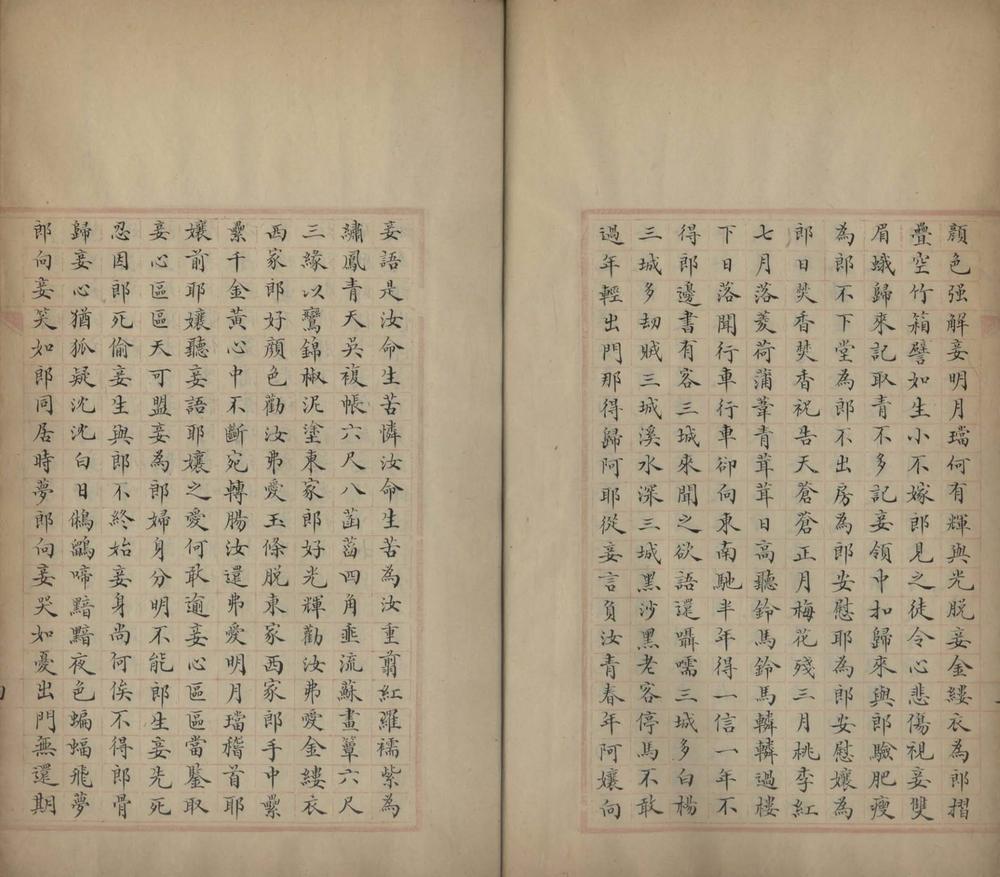 顔色强解妾明月璫何有輝與光脫妾金縷衣為郎摺
疊空竹箱譬如生小不嫁郎見之徒令心悲傷視妾雙
眉蛾歸來記取青不多記妾領中扣歸來與郎驗肥瘦
為郎不下堂為郎不出房為郎安慰耶為郎安慰孃為
郎日焚香焚香祝告天蒼蒼正月梅花殘三月桃李紅
七月落菱荷蒲葦青茸茸日高聽鈴馬鈴馬轔轔過樓
下日落聞行車行車卻向東南馳半年得一信一年不
得郎邊書有客三城來聞之欲語還囁嚅三城多白楊
三城多劫賊三城溪水深三城黑沙黑老客停馬不敢
過年輕出門那得歸阿耶從妾言負汝青春年阿孃向
妾語是汝命生苦憐汝命生苦為汝重翦紅羅襦紫為
繡鳳青天吳複帳六尺八菡萏四角垂流蘇畫簟六尺
三緣以鸞錦椒泥塗東家郎好光輝勸汝弗愛金縷衣
西家郎好顏色勸汝弗愛玉條脫東家西家郎手中纍
纍千金黃心中不斷宛轉腸汝還弗愛明月璫稽首耶
孃前耶孃聽妾語耶孃之愛何敢逾妾心區區當鑒取
妾心區區天可盟妾為郎婦身分明不能郎生妾先死
忍因郎死偷妾生與郎不終始妾身尚何俟不得郎骨
歸妾心猶狐疑沈沈白日鵂鶹啼黯黯夜色蝙蝠飛夢
郎向妾笑如郎同居時夢郎向妾哭如憂出門無還期